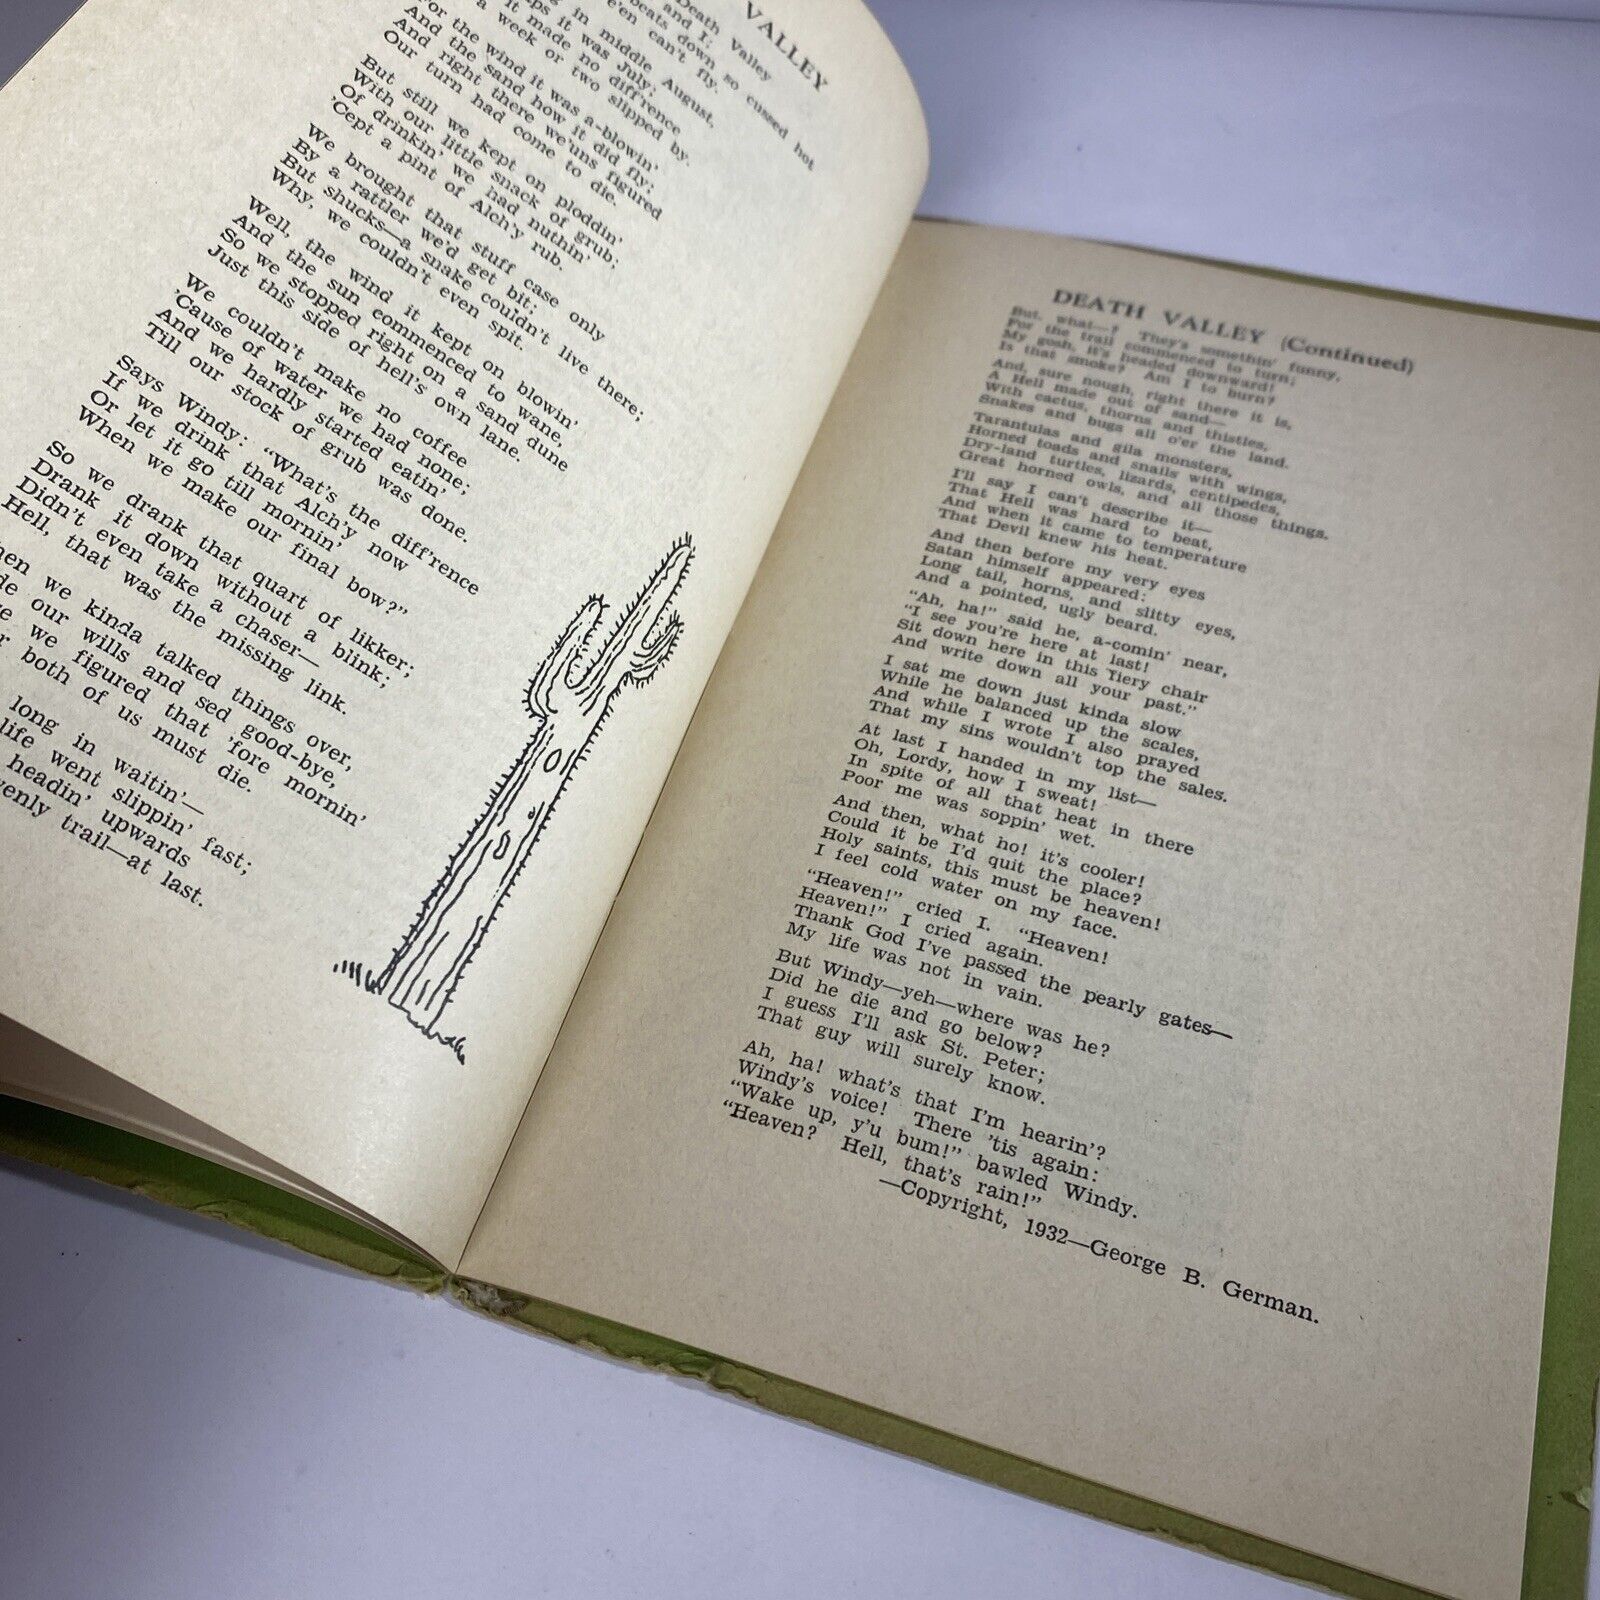 VALLEY
Death Valley
and I;
beats down so cussed hot
e'en can't fly.
in middle August,
it was July;
it made no diff'rence
a week or two slipped by.
For the wind it was a-blowin'
And the sand how it did fly;
And right there we'uns figured
Our turn had come to die.
But still we kept on ploddin'
With our little snack of grub;
Of drinkin' we had nuthin'
'Cept a pint of Alch'y rub.
We brought that stuff case only
By a rattler we'd get bit;
But shucks—a snake couldn't live there;
Why, we couldn't even spit.
Well, the wind it kept on blowin'
And the sun commenced to wane,
So we stopped right on a sand dune
Just this side of hell's own lane.
We couldn't make no coffee
'Cause of water we had none;
And we hardly started eatin'
Till our stock of grub was done.
Says Windy: "What's the diff'rence
If we drink that Alch'y now
Or let it go till mornin'
When we make our final bow?"
So we drank that quart of likker;
Drank it down without a blink;
Didn't even take a chaser—
Hell, that was the missing link.
we kinda talked things over,
our wills and sed good-bye,
we figured that 'fore mornin'
both of us must die.
long in waitin'—
life went slippin' fast;
headin' upwards
trail—at last.
DEATH VALLEY (Continued)
But, what—? They's somethin' funny,
For the trail commenced to turn;
My gosh, it's headed downward!
Is that smoke? Am I to burn?
And, sure nough, right there it is,
A Hell made out of sand—
With cactus, thorns and thistles,
Snakes and bugs all o'er the land.
Tarantulas and gila monsters,
Horned toads and snails with wings,
Dry-land turtles, lizards, centipedes,
Great horned owls, and all those things.
I'll say I can't describe it—
That Hell was hard to beat,
And when it came to temperature
That Devil knew his heat.
And then before my very eyes
Satan himself appeared:
Long tail, horns, and slitty eyes,
And a pointed, ugly beard.
"Ah, ha!" said he, a-comin' near,
"I see you're here at last!
Sit down here in this fiery chair
And write down all your past."
I sat me down just kinda slow
While he balanced up the scales,
And while I wrote I also prayed
That my sins wouldn't top the sales.
At last I handed in my list—
Oh, Lordy, how I sweat!
In spite of all that heat in there
Poor me was soppin' wet.
And then, what ho! it's cooler!
Could it be I'd quit the place?
Holy saints, this must be heaven!
I feel cold water on my face.
"Heaven!" cried I. "Heaven!
Heaven!" I cried again.
Thank God I've passed the pearly gates—
My life was not in vain.
But Windy—yeh—where was he?
Did he die and go below?
I guess I'll ask St. Peter;
That guy will surely know.
Ah, ha! what's that I'm hearin'?
Windy's voice! There 'tis again:
"Wake up, y'u bum!" bawled Windy.
"Heaven? Hell, that's rain!"
—Copyright, 1932—George B. German.